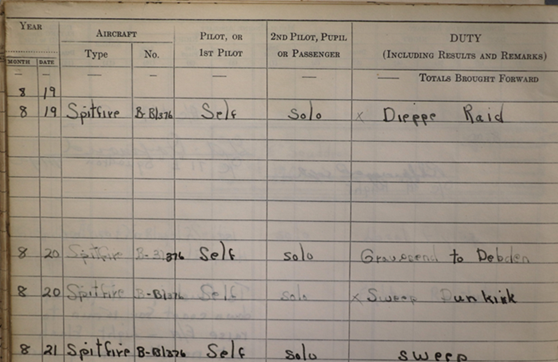 YEAR AIRCRAFT PILOT, OR 2ND PILOT, PUPIL DUTY
MONTH DATE Type No. 1ST PILOT OR PASSENGER (INCLUDING RESULTS AND REMARKS)
— — — — — — — TOTALS BROUGHT FORWARD
8 19
8 19 Spitfire Self Solo x Dieppe Raid
8 20 Spitfire Self solo Gravesend to Debden
8 20 Spitfire Self solo x Sweep Dunkirk
8 21 Spitfire Self solo sweep